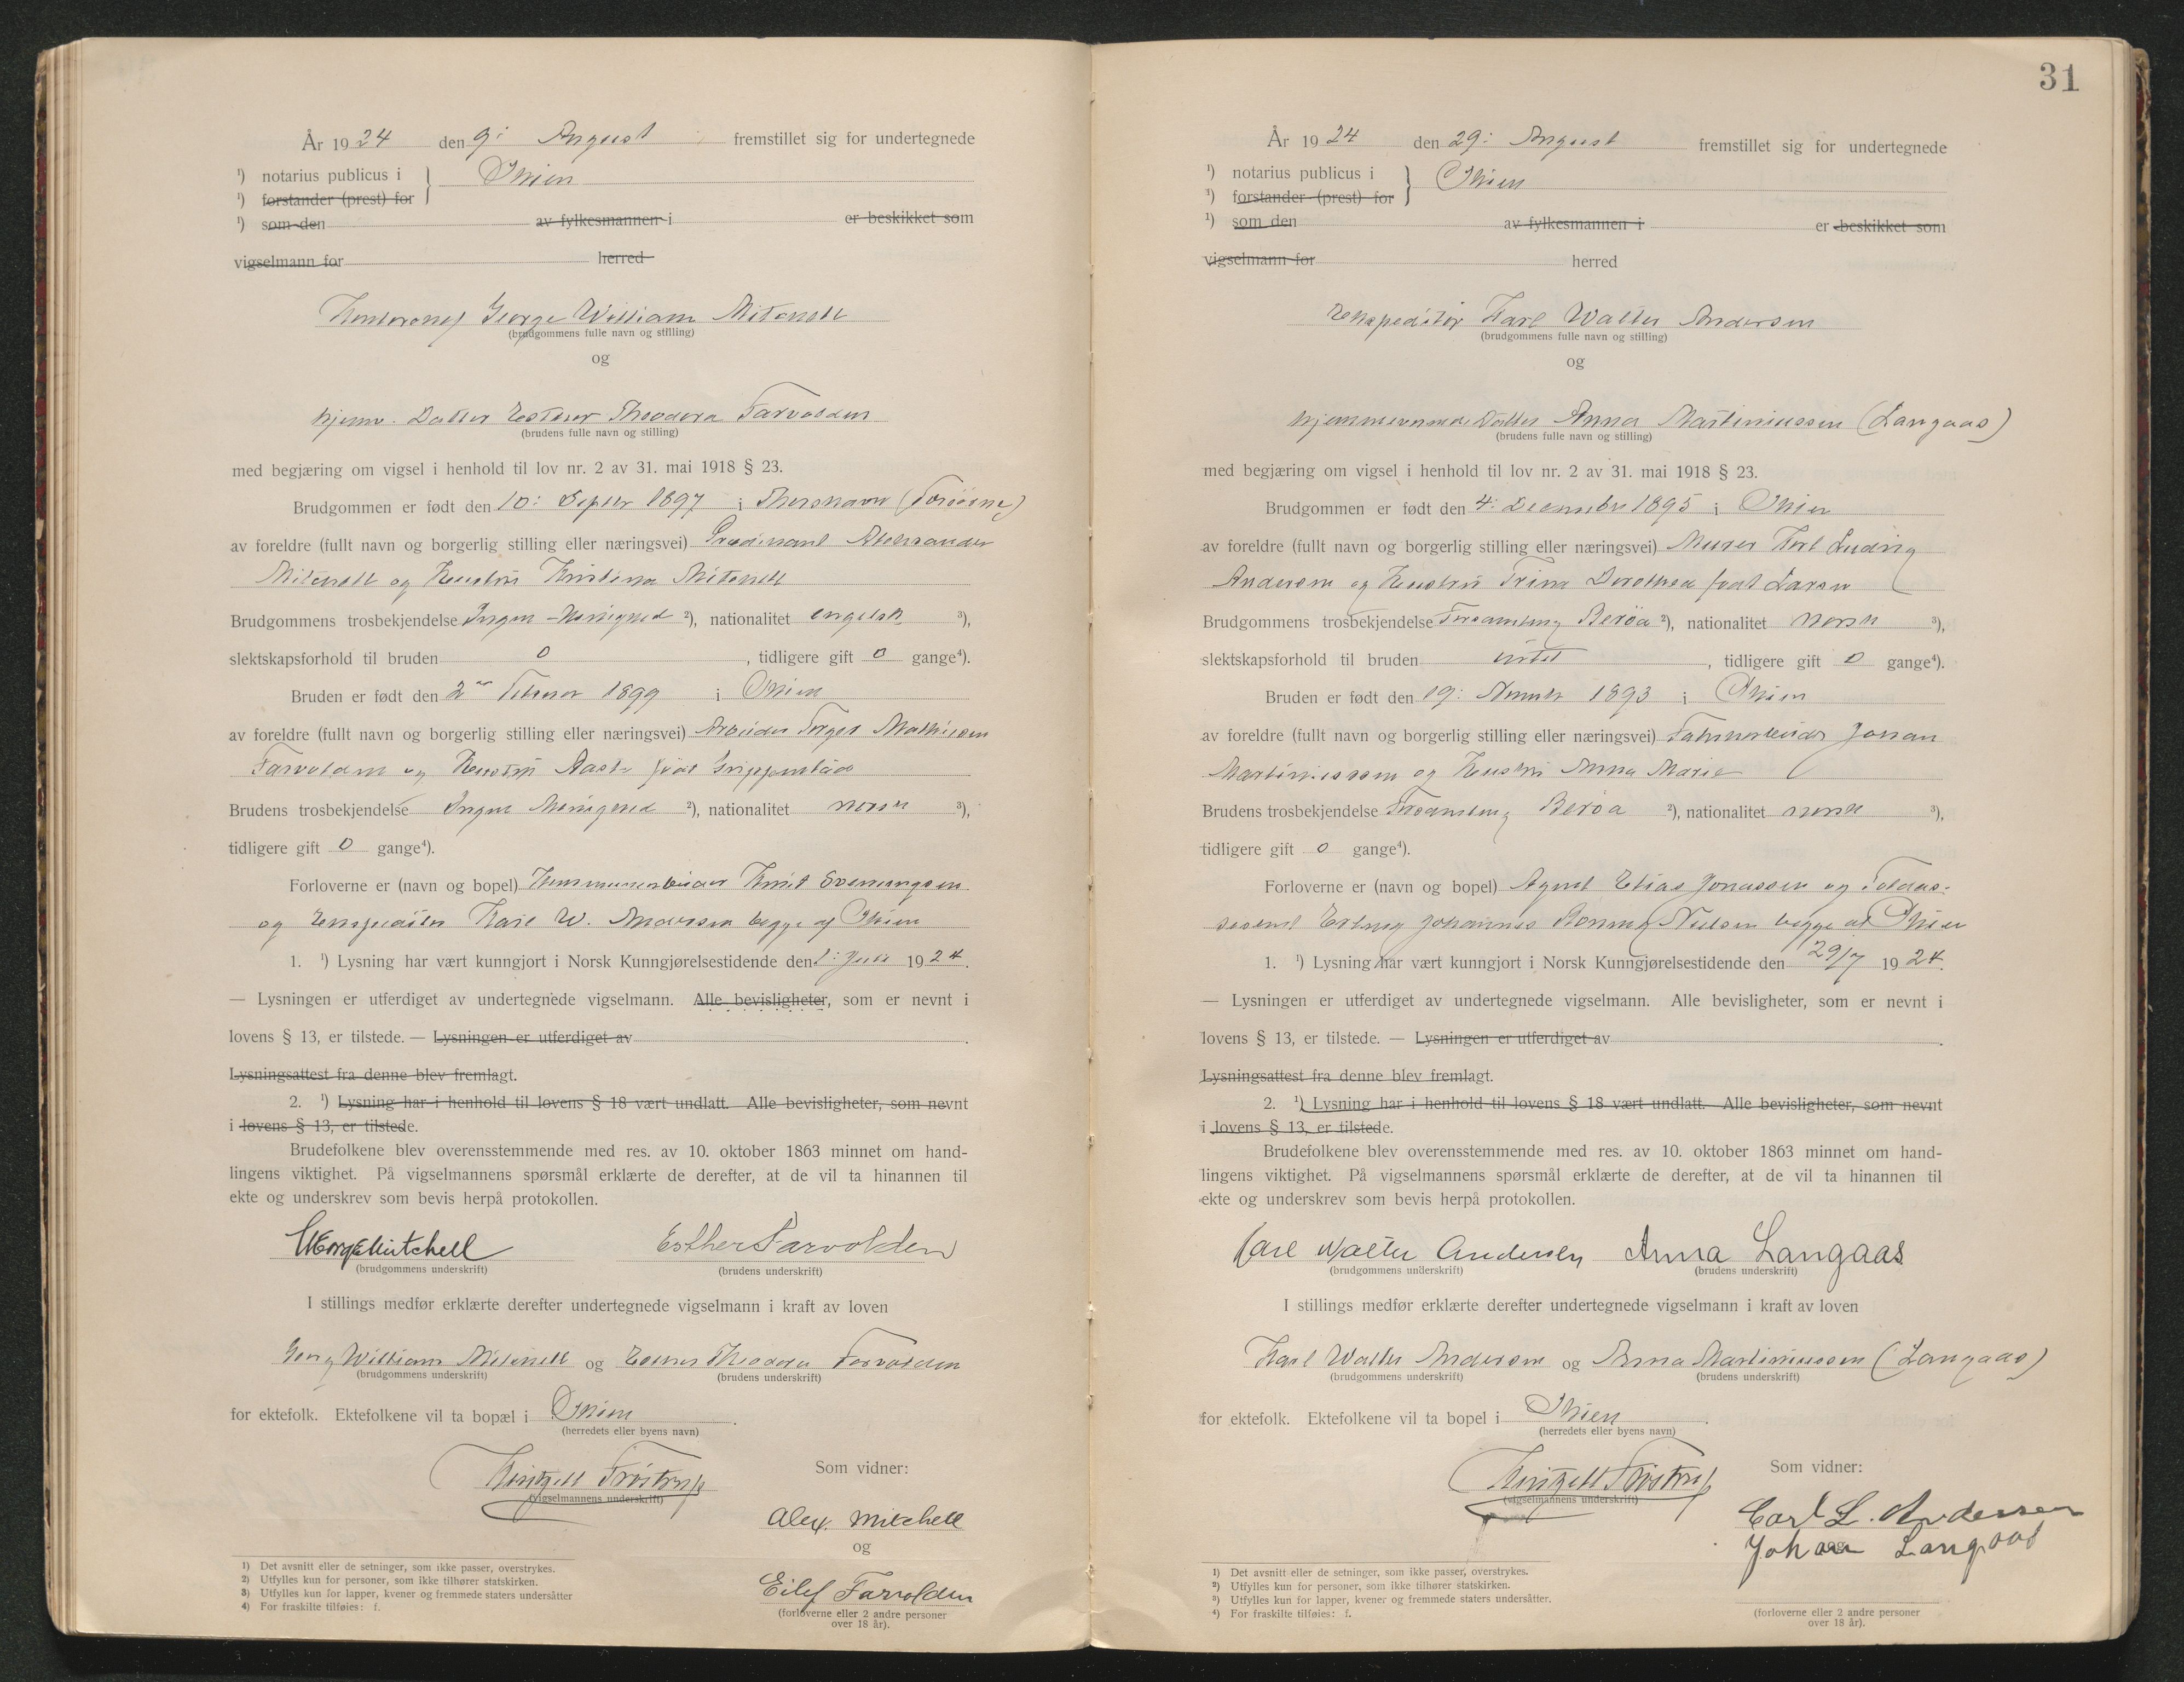 År 1924 den 9: August fremstillet sig for undertegnede
¹) notarius publicus i } Skien
¹) forstander (prest) for
¹) som den av fylkesmannen i er beskikket som
vigselmann for herred
Kontorchef George William Mitchell
(brudgommens fulle navn og stilling)
og
hjemv. Datter Esther Theodora Farvolden
(brudens fulle navn og stilling)
med begjæring om vigsel i henhold til lov nr. 2 av 31. mai 1918 § 23.
Brudgommen er født den 10: Septbr 1897 i Thorshavn (Færöerne)
av foreldre (fullt navn og borgerlig stilling eller næringsvei) Predikant Aleksander
Mitchell og Hustru Kristina Mitchell
Brudgommens trosbekjendelse Ingen Menighed ²), nationalitet engelsk ³),
slektskapsforhold til bruden 0, tidligere gift 0 gange⁴).
Bruden er født den 2den Februar 1899 i Skien
av foreldre (fullt navn og borgerlig stilling eller næringsvei) Arbeider Torger Mathisen
Farvolden og Hustru Aaste født Grippenstad
Brudens trosbekjendelse Ingen Menighed ²), nationalitet norsk ³),
tidligere gift 0 gange⁴).
Forloverne er (navn og bopel) Kommunearbeider Knut Svenungsen
og Ekspeditör Karl W. Andersen begge af Skien
1. ¹) Lysning har vært kunngjort i Norsk Kunngjørelsestidende den 1: Juli 1924.
— Lysningen er utferdiget av undertegnede vigselmann. Alle bevisligheter, som er nevnt i
lovens § 13, er tilstede. — Lysningen er utferdiget av .
Lysningsattest fra denne blev fremlagt.
2. ¹) Lysning har i henhold til lovens § 18 vært undlatt. Alle bevisligheter, som nevnt
i lovens § 13, er tilstede.
Brudefolkene blev overensstemmende med res. av 10. oktober 1863 minnet om hand-
lingens viktighet. På vigselmannens spørsmål erklærte de derefter, at de vil ta hinannen til
ekte og underskrev som bevis herpå protokollen.
George Mitchell Esther Farvolden
(brudgommens underskrift) (brudens underskrift)
I stillings medfør erklærte derefter undertegnede vigselmann i kraft av loven
Georg William Mitchell og Esther Theodora Farvolden
(brudgommens underskrift) (brudens underskrift)
for ektefolk. Ektefolkene vil ta bopæl i Skien .
(herredets eller byens navn)
Som vidner:
(vigselmannens underskrift)
Alex. Mitchell
og
Eilef Farvolden
(forloverne eller 2 andre personer
over 18 år).
1) Det avsnitt eller de setninger, som ikke passer, overstrykes.
2) Utfylles kun for personer, som ikke tilhører statskirken.
3) Utfylles kun for lapper, kvener og fremmede staters undersåtter
4) For fraskilte tilføies: f.
31
År 1924 den 29: August fremstillet sig for undertegnede
¹) notarius publicus i } Skien
¹) forstander (prest) for
¹) som den av fylkesmannen i er beskikket som
vigselmann for herred
Ekspeditör Karl Walter Andersen
(brudgommens fulle navn og stilling)
og
hjemmeværende Datter Anna Martiniussen (Langaas)
(brudens fulle navn og stilling)
med begjæring om vigsel i henhold til lov nr. 2 av 31. mai 1918 § 23.
Brudgommen er født den 4: December 1895 i Skien
av foreldre (fullt navn og borgerlig stilling eller næringsvei) Murer Karl Ludvig
Andersen og Hustru Trina Dorothea født Larsen
Brudgommens trosbekjendelse Forsamling Beröa ²), nationalitet norsk ³),
slektskapsforhold til bruden intet, tidligere gift 0 gange⁴).
Bruden er født den 19: Novembr 1893 i Skien
av foreldre (fullt navn og borgerlig stilling eller næringsvei) Fabrikarbeider Johan
Martiniussen og Hustru Anna Marie
Brudens trosbekjendelse Forsamling Beröa ²), nationalitet norsk ³),
tidligere gift 0 gange⁴).
Forloverne er (navn og bopel) Agent Elias Jonassen og Toldas-
sistent Erling Johannes Ronning Nielsen begge af Skien
1. ¹) Lysning har vært kunngjort i Norsk Kunngjørelsestidende den 29/7 1924.
— Lysningen er utferdiget av undertegnede vigselmann. Alle bevisligheter, som er nevnt i
lovens § 13, er tilstede. — Lysningen er utferdiget av .
Lysningsattest fra denne blev fremlagt.
2. ¹) Lysning har i henhold til lovens § 18 vært undlatt. Alle bevisligheter, som nevnt
i lovens § 13, er tilstede.
Brudefolkene blev overensstemmende med res. av 10. oktober 1863 minnet om hand-
lingens viktighet. På vigselmannens spørsmål erklærte de derefter, at de vil ta hinannen til
ekte og underskrev som bevis herpå protokollen.
Carl Walter Andersen Anna Langaas
(brudgommens underskrift) (brudens underskrift)
I stillings medfør erklærte derefter undertegnede vigselmann i kraft av loven
Karl Walter Andersen og Anna Martiniussen (Langaas)
(brudgommens underskrift) (brudens underskrift)
for ektefolk. Ektefolkene vil ta bopel i Skien .
(herredets eller byens navn)
Som vidner:
(vigselmannens underskrift)
Carl L. Andersen
og
Johan Langaas
(forloverne eller 2 andre personer
over 18 år).
1) Det avsnitt eller de setninger, som ikke passer, overstrykes.
2) Utfylles kun for personer, som ikke tilhører statskirken.
3) Utfylles kun for lapper, kvener og fremmede staters undersåtter.
4) For fraskilte tilføies: f.